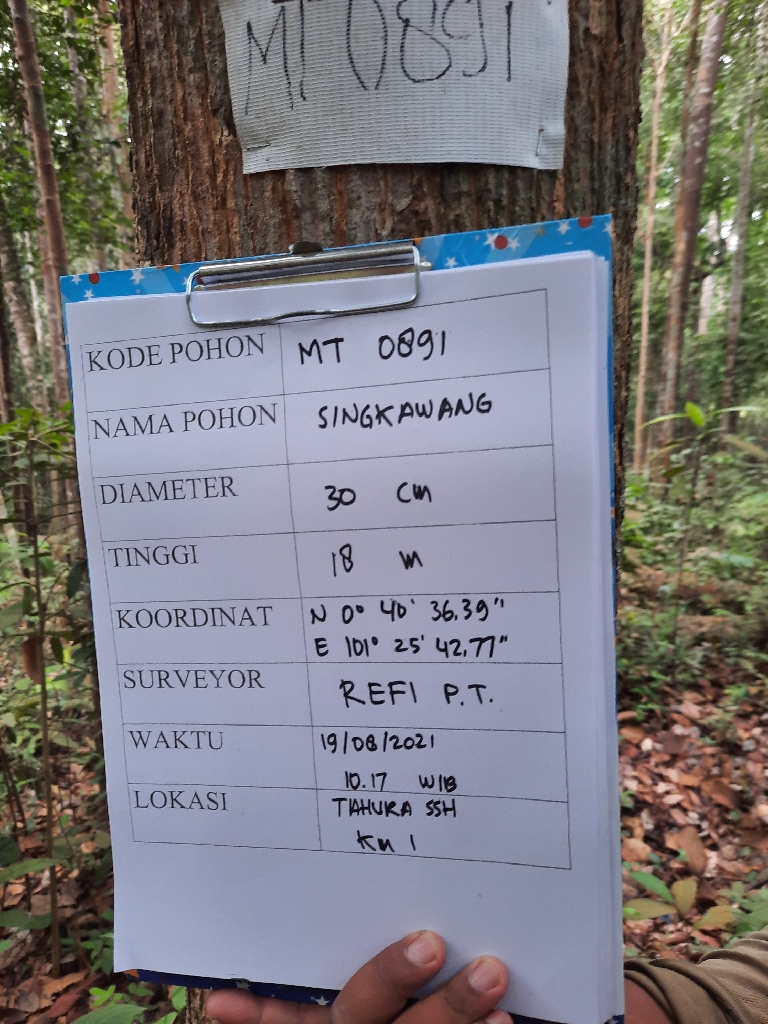 MT 0891
KODE POHON MT 0891
NAMA POHON SINGKAWANG
DIAMETER 30 cm
TINGGI 18 m
KOORDINAT N 0° 40' 36.39"
E 101° 25' 42.77"
SURVEYOR REFI P.T.
WAKTU 19/08/2021
10.17 WIB
LOKASI TAHURA SSH
Km 1